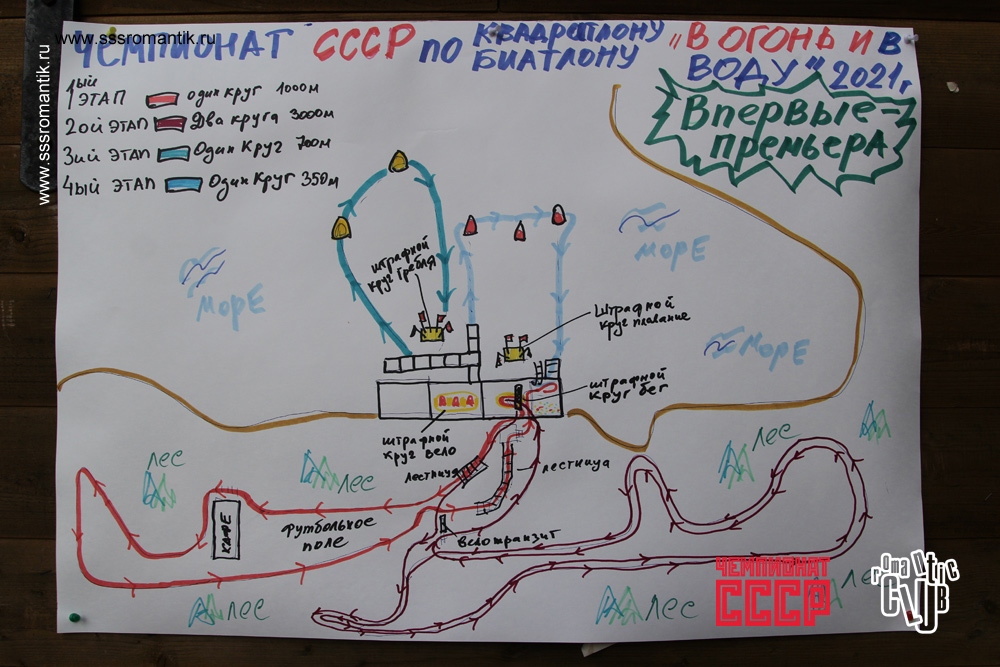 www.sssromantik.ru
www.sssromantik.ru
ЧЕМПИОНАТ СССР ПО КВАДРАТЛОНУ БИАТЛОНУ "В ОГОНЬ И В
ВОДУ" 2021г
Впервые-
премьера
1ый ЭТАП один круг 1000м
2ой ЭТАП Два круга 3000м
3ий ЭТАП Один Круг 700м
4ый ЭТАП Один Круг 350м
штрафной
круг гребля
МОРЕ
МОРЕ
МОРЕ
Штрафной
круг плавание
штрафной
круг бег
штрафной
круг вело
лестница
лестница
велотранзит
футбольное
поле
КАФЕ
лес
лес
лес
лес
лес
лес
лес
ЧЕМПИОНАТ
СССР
romantic
CLUB